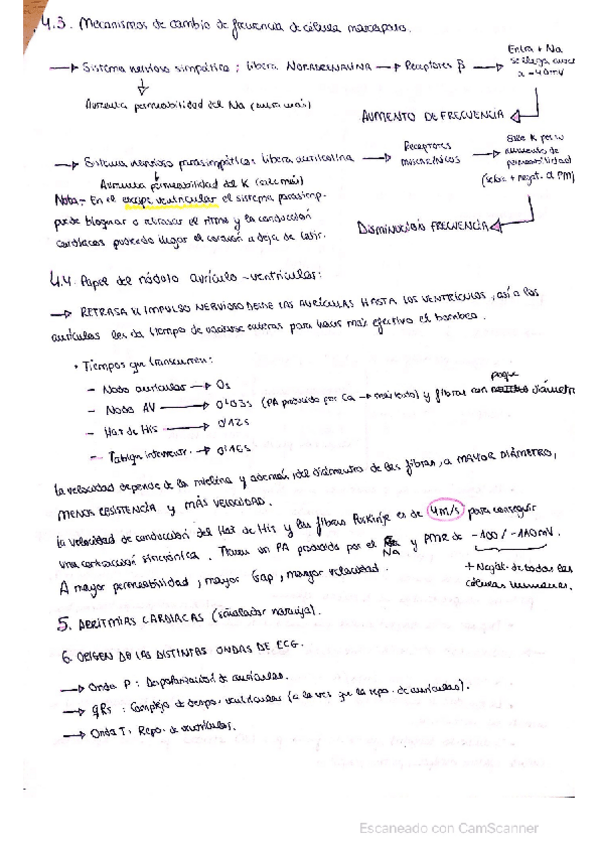 4.3. Mecanismos de cambio de frecuencia de célula marcapaso.
→ Sistema nervioso simpático : libera NORADRENALINA → Receptores β → Entra + Na
se llega antes
a -40mV
Aumenta permeabilidad del Na (entra más)
AUMENTO DE FRECUENCIA
→ Sistema nervioso parasimpático: libera acetilcolina → Receptores
muscarínicos → Sale K por ↑↑
aumento de
permeabilidad
(se hace + negat. el PM)
Aumenta permeabilidad del K (sale más)
Nota.- En el escape ventricular el sistema parasimp.
puede bloquear o retrasar el ritmo y la conducción
cardíacos pudiendo llegar el corazón a dejar de latir.
DISMINUCIÓN FRECUENCIA
4.4. Papel del nódulo aurículo-ventricular:
→ RETRASA EL IMPULSO NERVIOSO DESDE LAS AURÍCULAS HASTA LOS VENTRÍCULOS, así a las
aurículas les da tiempo de vaciarse enteras para hacer más efectivo el bombeo.
• Tiempos que transcurren:
- Nodo auricular → 0s
- Nodo AV → 0'03s (PA producido por Ca → más lento) y fibras con poque diámetr
- Haz de His → 0'12s
- Tabique intervent. → 0'16s
La velocidad depende de la mielina y además, del diámetro de las fibras, a MAYOR DIÁMETRO,
MENOR RESISTENCIA y MÁS VELOCIDAD.
La velocidad de conducción del Haz de His y las fibras Purkinje es de 4m/s para conseguir
una contracción sincrónica. Tienen un PA producido por el Na y PMR de -100/-110mV.
A mayor permeabilidad, mayor Gap, mayor velocidad.
+ Negat. de todas las
células humanas.
5. ARRITMIAS CARDÍACAS (señalador naranja).
6. ORIGEN DE LAS DISTINTAS ONDAS DE ECG.
→ Onda P : Despolarización de aurículas.
→ QRS : Complejo de despo. ventriculares (a la vez que la repo. de aurículas).
→ Onda T: Repo. de ventrículos.
Escaneado con CamScanner